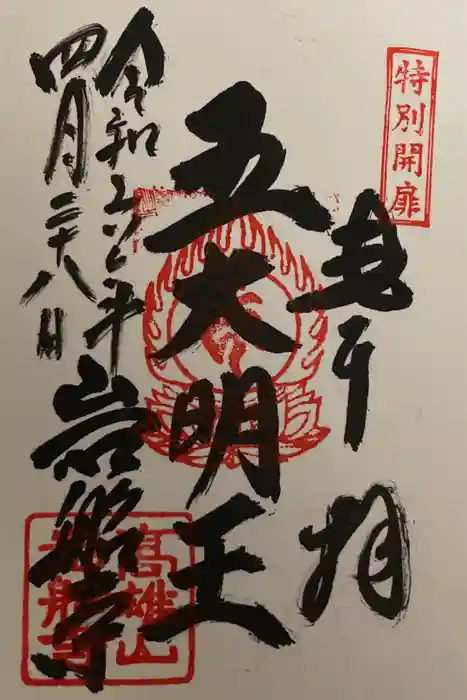 特別開扉
奉拝
五大明王
令和六年
四月二十八日
岩船寺
高雄山
岩船寺